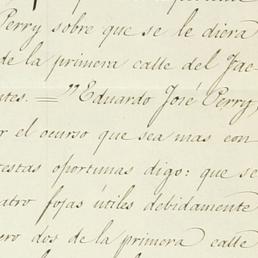 Perry sobre que se le diera
de la primera calle del Jac-
ntes. = "Eduardo José Perry,
r el ocurso que sea mas con
testas oportunas digo: que se
atro fojas útiles debidamente
ero dos de la primera calle